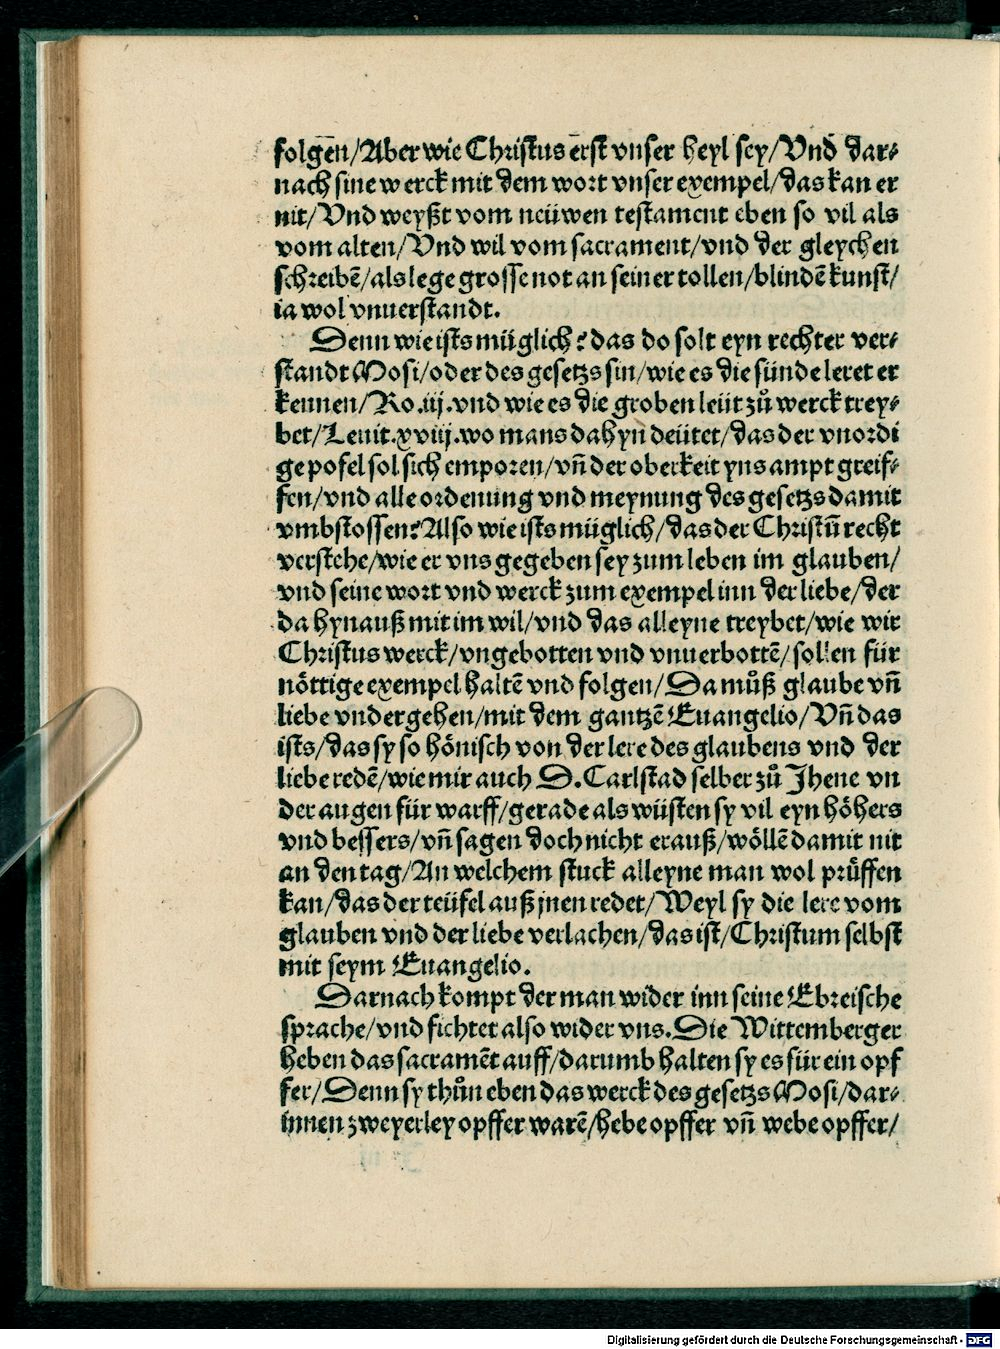 folgen/Aber wie Christus erst vnser heyl sey/Vnd dar⸗
nach sine werck mit dem wort vnser exempel/das kan er
nit/Vnd weyßt vom neüwen testament eben so vil als
vom alten/Vnd wil vom sacrament/vnd der gleychen
schreibē/als lege grosse not an seiner tollen/blindē kunst/
ia wol vnuerstandt.
Denn wie ists müglich? das do solt eyn rechter ver⸗
standt Mosi/oder des gesetzs sin/wie es die sünde leret er
kennen/Ro.iij.vnd wie es die groben leüt zů werck trey⸗
bet/Leuit.xviij.wo mans dahyn deütet/das der vnordi
ge pofel sol sich emporen/vñ der oberkeit yns ampt greif⸗
fen/vnd alle ordenung vnd meynung des gesetzs damit
vmbstossen? Also wie ists müglich/das der Christū recht
verstehe/wie er vns gegeben sey zum leben im glauben/
vnd seine wort vnd werck zum exempel inn der liebe/der
da hynauß mit im wil/vnd das alleyne treybet/wie wir
Christus werck/vngebotten vnd vnuerbottē/sollen für
nöttige exempel haltē vnd folgen/Da můß glaube vñ
liebe vndergehen/mit dem gantzē Euangelio/Vñ das
ists/das sy so hönisch von der lere des glaubens vnd der
liebe redē/wie mir auch D.Carlstad selber zů Jhene vn
der augen für warff/gerade als wüsten sy vil eyn höhers
vnd bessers/vñ sagen doch nicht erauß/wöllē damit nit
an den tag/An welchem stuck alleyne man wol prüffen
kan/das der teüfel auß jnen redet/Weyl sy die lere vom
glauben vnd der liebe verlachen/das ist/Christum selbst
mit seym Euangelio.
Darnach kompt der man wider inn seine Ebreische
sprache/vnd fichtet also wider vns.Die Wittemberger
heben das sacramēt auff/darumb halten sy es für ein opf
fer/Denn sy thůn eben das werck des gesetzs Mosi/dar⸗
innen zweyerley opffer warē/hebe opffer vñ webe opffer/
Digitalisierung gefördert durch die Deutsche Forschungsgemeinschaft - DFG